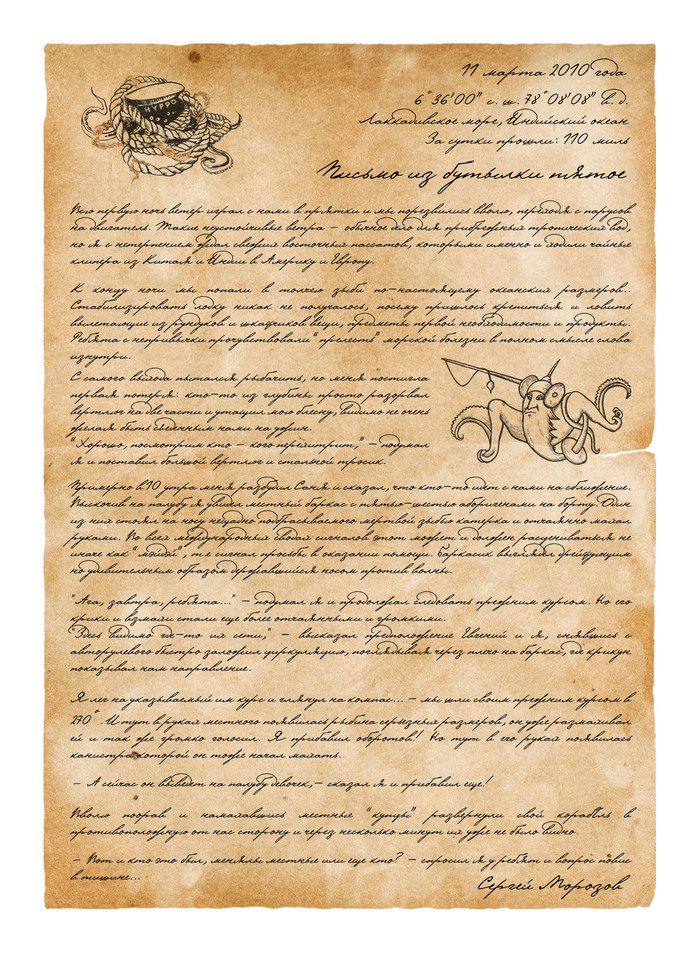 HYPPO
11 марта 2010 года
6°36'00" с. ш. 78°08'08" в. д.
Лаккадивское море, Индийский океан
За сутки прошли: 110 миль
Письмо из бутылки пятое
Всю первую ночь ветер играл с нами в прятки и мы порезвились вволю, переходя с парусов
на двигатель. Такие неустойчивые ветра – обычное дело для прибрежных тропических вод,
но я с нетерпением ждал свежих восточных пассатов, которыми именно и ходили чайные
клипера из Китая и Индии в Америку и Европу.
К концу ночи мы попали в толчею зыби по-настоящему океанских размеров..
Стабилизировать лодку никак не получалось, посему пришлось крепиться и ловить
вылетающие из рундуков и шкафчиков вещи, предметы первой необходимости и продукты.
Ребята с непривычки прочувствовали "прелесть" морской болезни в полном смысле слова
изнутри.
С самого выхода пытался рыбачить, но меня постигла
первая потеря: кто-то из глубины просто разорвал
вертлюг на две части и утащил мою блесну, видимо не очень
желая быть съеденным нами на ужин.
"Хорошо, посмотрим кто – кого перехитрит," – подумал
я и поставил большой вертлюг и стальной тросик.
Примерно в 10 утра меня разбудил Саня и сказал, что кто-то идет с нами на сближение.
Выскочив на палубу я увидел местный баркас с пятью-шестью аборигенами на борту. Один
из них стоял на носу нещадно подбрасываемого мертвой зыбью катерка и отчаянно махал
руками. Во всех международных сводах сигналов этот может и должен расцениваться не
иначе как "мэйдэй", т.е сигнал просьбы в оказании помощи. Баркасик выглядел дрейфующим
но удивительным образом державшийся носом против волны.
"Ага, завтра, ребята..." – подумал я и продолжал следовать прежним курсом. Но его
крики и взмахи стали еще более отчаянными и громкими.
"Здесь видимо где-то их сети," – высказал предположение Евгений и я, снявшись с
авторулевого быстро заложил циркуляцию, поглядывая через плечо на баркас, где крикун
показывал нам направление.
Я лег на указываемый им курс и глянул на компас... – мы шли своим прежним курсом в
270°. И тут в руках местного появилась рыбина серьезных размеров, он уже размахивал
ей и так же громко голосил. Я прибавил оборотов! Но тут в его руках появилась
канистра которой он тоже начал махать.
– А сейчас он выведет на палубу девочек, – сказал я и прибавил еще!
Вволю поорав и намахавшись местные "купцы" развернули свой корабль в
противоположную от нас сторону и через несколько минут их уже не было видно.
– Вот и кто это был, менялы местные или еще кто? – спросил я у ребят и вопрос повис
в тишине...
Сергей Морозов